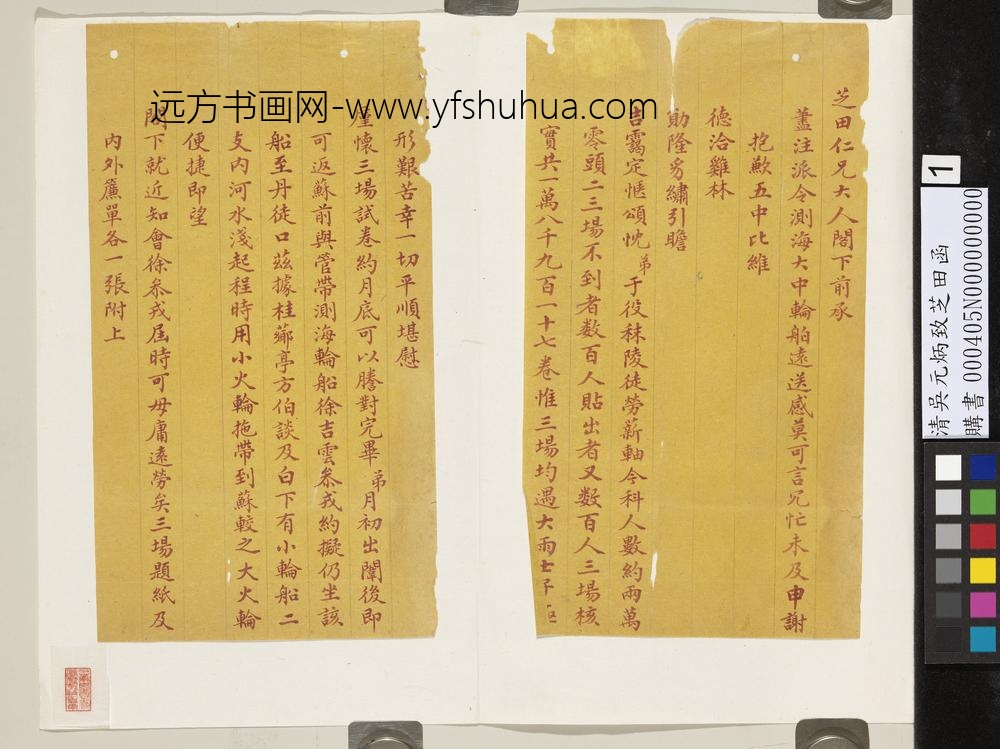 芝田仁兄大人閣下前承
藎注派令測海大中輪舶遠送感莫可言冗忙未及申謝
抱歉五中比維
德洽雞林
勛隆豸繡引瞻
吉靄定愜頌忱弟于役秣陵徒勞薪軸今科人數約兩萬
零頭二三場不到者数百人貼出者又数百人三場核
實共一萬八千九百一十七卷惟三場均遇大雨士子
形艱苦幸一切平順堪慰
廑懷三場試卷約月底可以謄對完畢弟月初出闈後即
可返蘇前與管帶測海輪船徐吉雲叅戎約擬仍坐該
船至丹徒口茲據桂薌亭方伯談及白下有小輪船二
支内河水淺起程時用小火輪拖帶到蘇較之大火輪
便捷即望
閣下就近知會徐叅戎屆時可毋庸遠勞矣三場題紙及
内外簾單各一張附上
远方书画网-www.yfshuhua.com
1
清吳元炳致芝田函
購書 000405N000000000